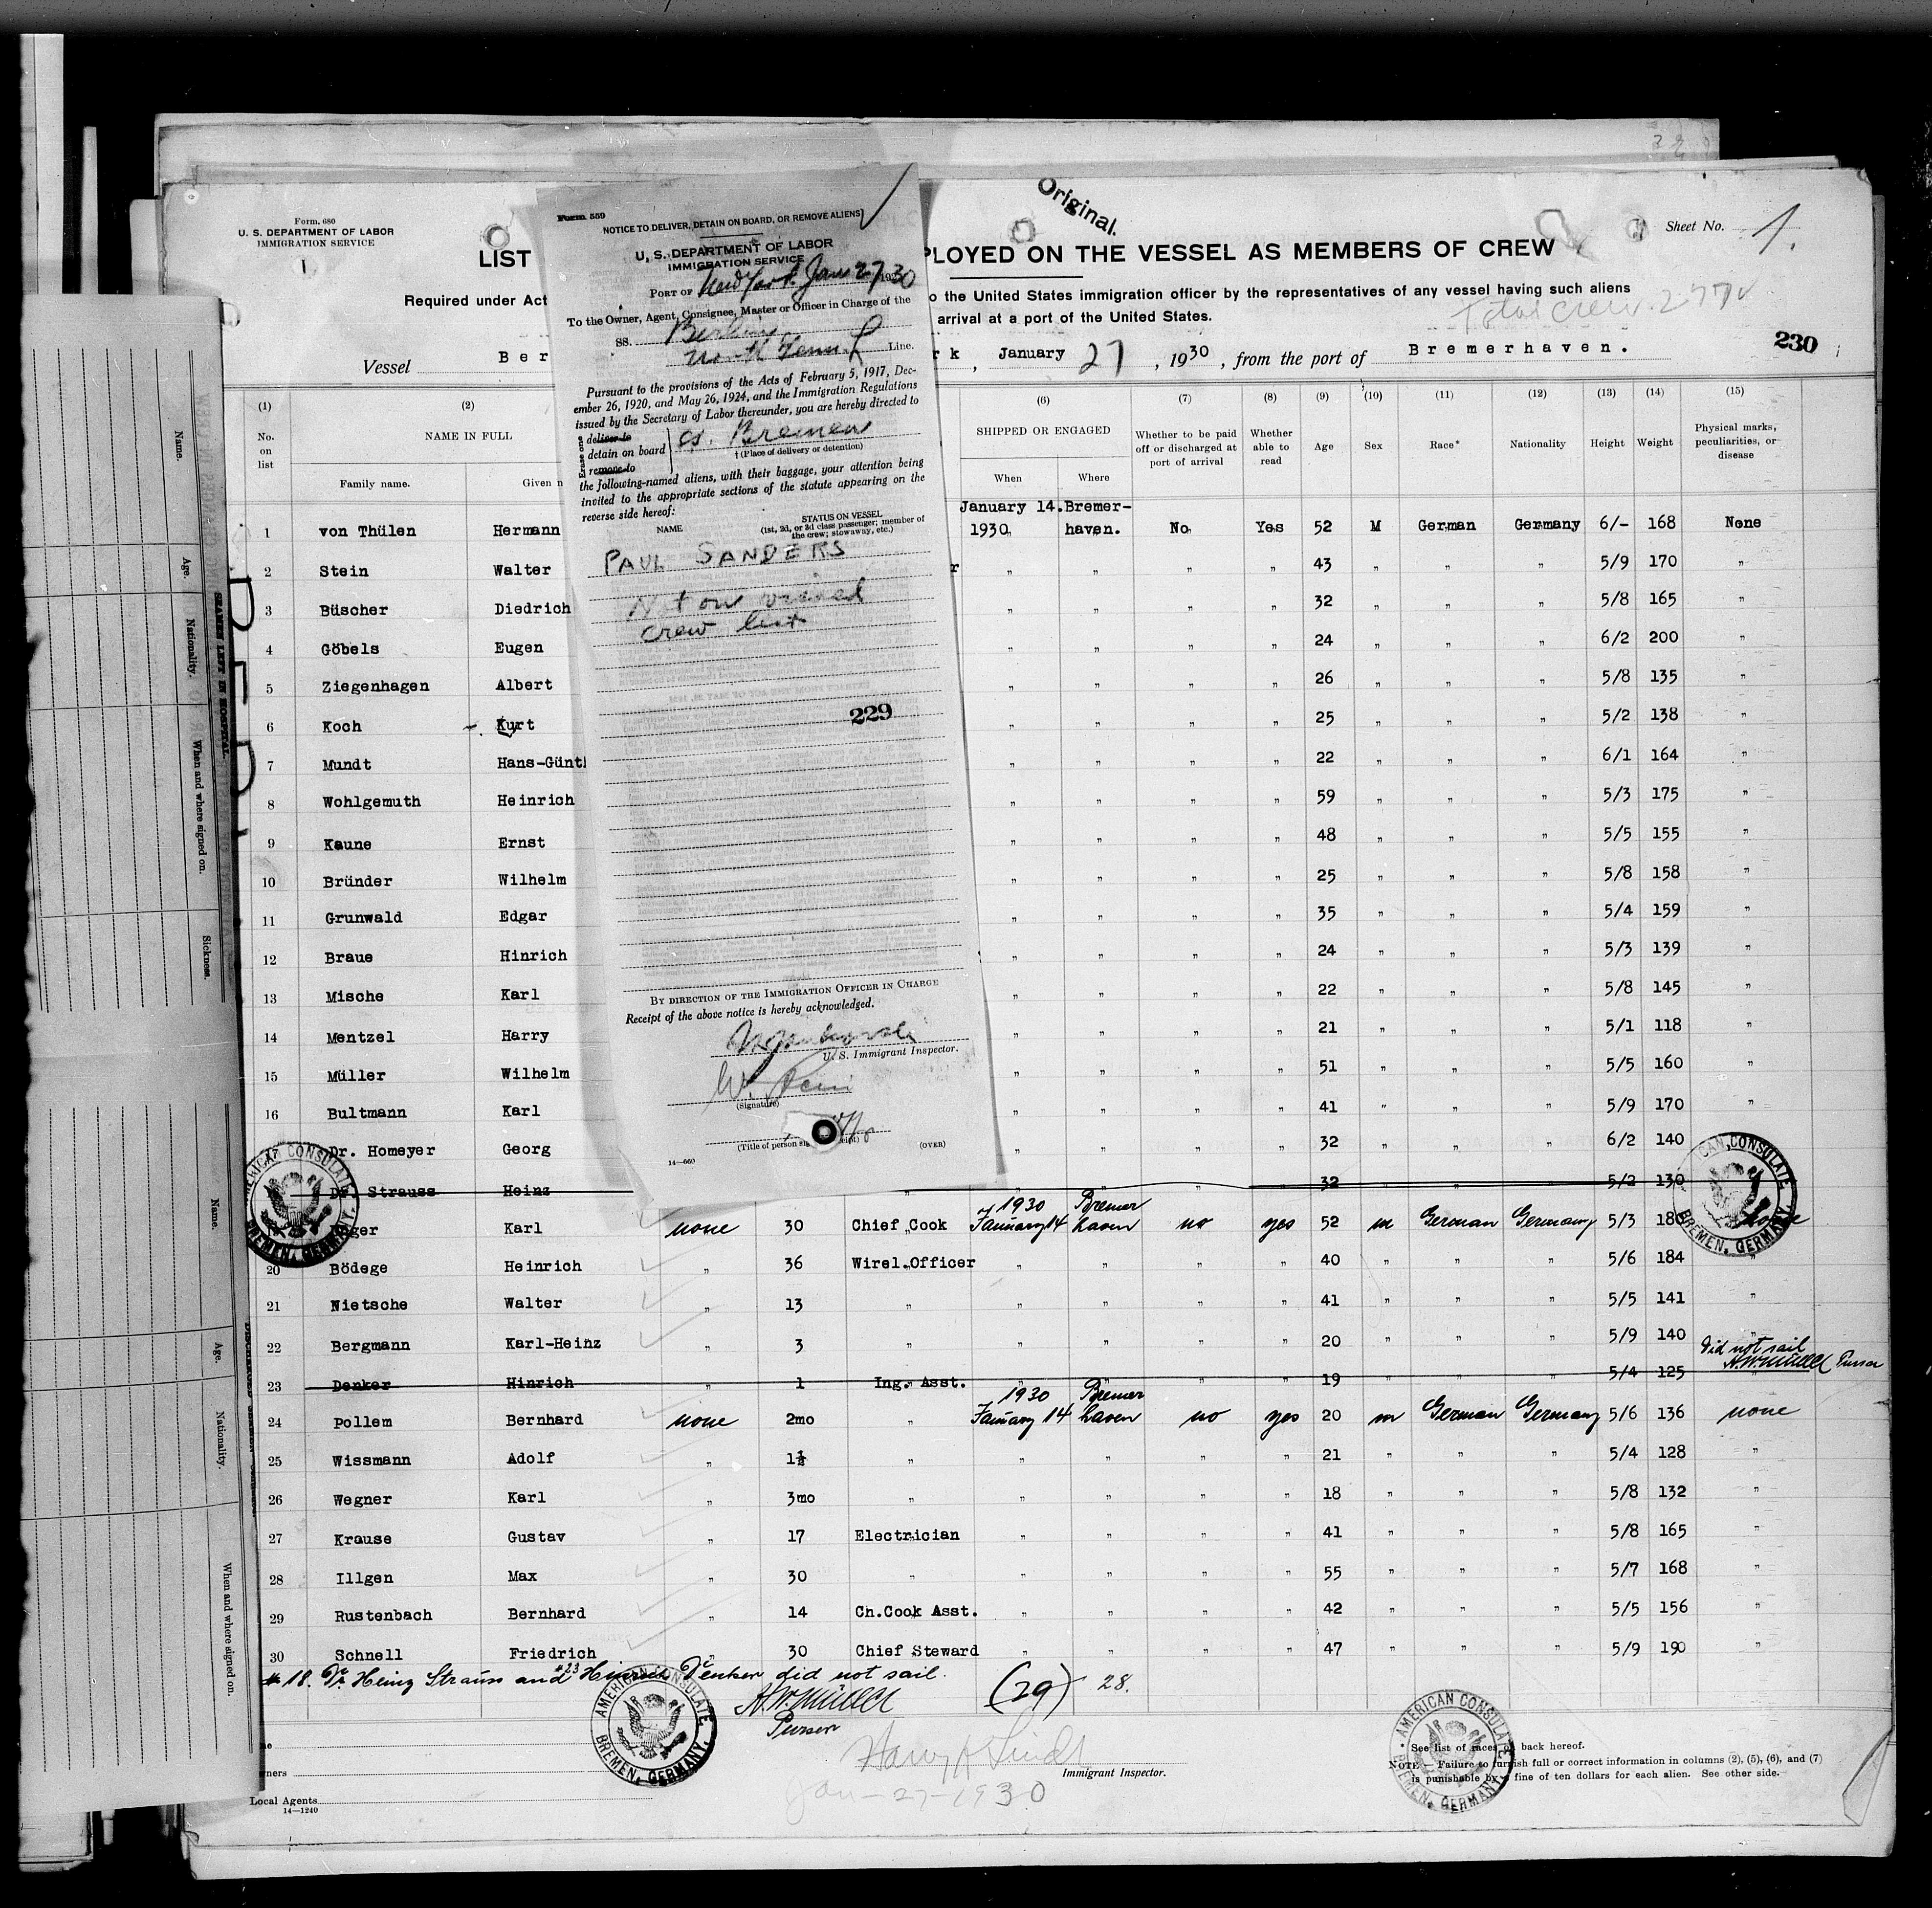 Form. 680
U. S. DEPARTMENT OF LABOR
IMMIGRATION SERVICE
Original.
Sheet No. 1.
LIST
PLOYED ON THE VESSEL AS MEMBERS OF CREW
Required under Act
o the United States immigration officer by the representatives of any vessel having such aliens
arrival at a port of the United States.
Total crew 277
230
Vessel Ber
rk , January 27 , 1930 , from the port of Bremerhaven.
(1) (2) (6) (7) (8) (9) (10) (11) (12) (13) (14) (15)
No. on list NAME IN FULL SHIPPED OR ENGAGED Whether to be paid off or discharged at port of arrival Whether able to read Age Sex Race* Nationality Height Weight Physical marks, peculiarities, or disease
Family name. Given n When Where
1 von Thülen Hermann January 14. 1930 Bremer-haven. No Yes 52 M German Germany 6/- 168 None
2 Stein Walter r " " " " 43 " " " 5/9 170 "
3 Büscher Diedrich " " " " 32 " " " 5/8 165 "
4 Göbels Eugen " " " " 24 " " " 6/2 200 "
5 Ziegenhagen Albert " " " " 26 " " " 5/8 135 "
6 Koch Kurt " " " " 25 " " " 5/2 138 "
7 Mundt Hans-Günt " " " " 22 " " " 6/1 164 "
8 Wohlgemuth Heinrich " " " " 59 " " " 5/3 175 "
9 Kaune Ernst " " " " 48 " " " 5/5 155 "
10 Bründer Wilhelm " " " " 25 " " " 5/8 158 "
11 Grunwald Edgar " " " " 35 " " " 5/4 159 "
12 Braue Hinrich " " " " 24 " " " 5/3 139 "
13 Mische Karl " " " " 22 " " " 5/8 145 "
14 Mentzel Harry " " " " 21 " " " 5/1 118 "
15 Müller Wilhelm " " " " 51 " " " 5/5 160 "
16 Bultmann Karl " " " " 41 " " " 5/9 170 "
17 Dr. Homeyer Georg " " " " 32 " " " 6/2 140
Dr. Strauss Heinz " " " " 32 " " " 5/2 130
ger Karl none 30 Chief Cook 1930 January 14 Bremer haven no yes 52 m German Germany 5/3 180 none
20 Bödege Heinrich " 36 Wirel.Officer " " " " 40 " " " 5/6 184 "
21 Nietsche Walter " 13 " " " " " 41 " " " 5/5 141 "
22 Bergmann Karl-Heinz " 3 " " " " " 20 " " " 5/9 140 "
did not sail
Purser
23 Denker Hinrich " 1 Ing. Asst. " " " " 19 " " " 5/4 125 "
24 pollem Bernhard none 2mo " 1930 January 14 Bremer haven no yes 20 m German Germany 5/6 136 none
25 Wissmann Adolf " 1½ " " " " " 21 " " " 5/4 128 "
26 Wegner Karl " 3mo " " " " " 18 " " " 5/8 132 "
27 Krause Gustav " 17 Electrician " " " " 41 " " " 5/8 165 "
28 Illgen Max " 30 " " " " " 55 " " " 5/7 168 "
29 Rustenbach Bernhard " 14 Ch.Cook Asst. " " " " 42 " " " 5/5 156 "
30 Schnell Friedrich " 30 Chief Steward " " " " 47 " " " 5/9 190 "
# 18. Dr Heinz Strauss and #23 Hinrich Denker did not sail.
(29) 28.
Purser
Immigrant Inspector.
Jan-27-1930
ners
Local Agents
14—1240
See list of races back hereof.
NOTE.—Failure to furnish full or correct information in columns (2), (5), (6), and (7)
is punishable by fine of ten dollars for each alien. See other side.
AMERICAN CONSULATE.
BREMEN, GERMANY.
AMERICAN CONSULATE.
BREMEN, GERMANY.
AMERICAN CONSULATE.
BREMEN, GERMANY.
AMERICAN CONSULATE
BREMEN, GERMANY.
Form 559
NOTICE TO DELIVER, DETAIN ON BOARD, OR REMOVE ALIENS
U. S. DEPARTMENT OF LABOR
IMMIGRATION SERVICE
PORT OF New York Jan 27, 1930
To the Owner, Agent, Consignee, Master or Officer in Charge of the
SS. Berlin
North Germ L Line.
Pursuant to the provisions of the Acts of February 5, 1917, Dec-
ember 26, 1920, and May 26, 1924, and the Immigration Regulations
issued by the Secretary of Labor thereunder, you are hereby directed to
Erase one
deliver to
detain on board
remove to
Bremen
† (Place of delivery or detention)
the following-named aliens, with their baggage, your attention being
invited to the appropriate sections of the statute appearing on the
reverse side hereof:
NAME
STATUS ON VESSEL
(1st, 2d, or 3d class passenger; member of
the crew; stowaway, etc.)
PAUL SANDERS
Not on visaed
crew list
229
BY DIRECTION OF THE IMMIGRATION OFFICER IN CHARGE
Receipt of the above notice is hereby acknowledged.
U. S. Immigrant Inspector.
(Signature)
(Title of person sig
(OVER)
14—660
Name.
Age.
Nationality.
When and where signed on.
Sickness.
SEAMEN LEFT IN HOSPITAL
Name.
Age.
Nationality.
When and where signed on.